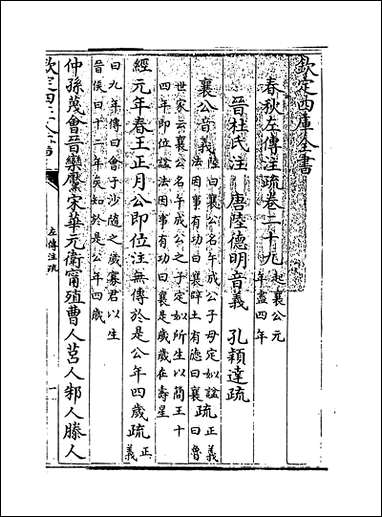 欽定四庫全書
春秋左傳注疏卷二十九 起襄公元年盡四年
晉杜氏注 唐陸德明音義 孔穎達疏
襄公音義 陸曰襄公名午成公子母定姒謚法因事有功曰襄辟土有德曰襄 疏 正義曰魯
世家云襄公名午成公之子定姒所生以簡王十四年即位謚法因事有功曰襄是歲歲在壽星
經元年春王正月公即位 注無傳於是公年四歲 疏 正義
曰九年傳曰會于沙隨之歲寡君以生晉侯曰十二年矣知於是公年四歲
仲孫蔑會晉欒黶宋華元衛甯殖曹人莒人邾人滕人
欽定四庫全書
左傳注疏
一